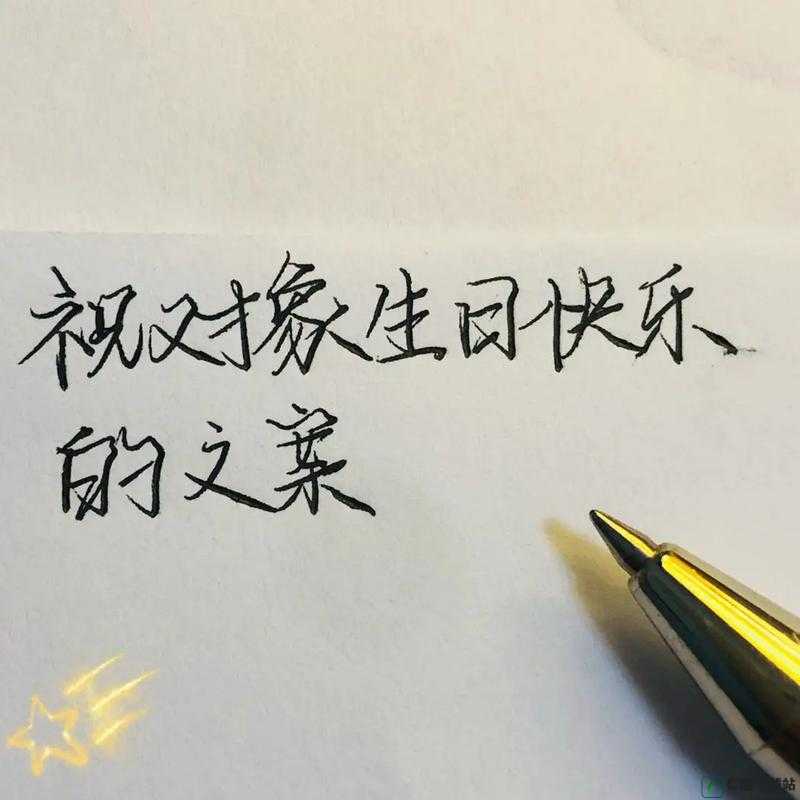 祝对象生日快乐
的文案